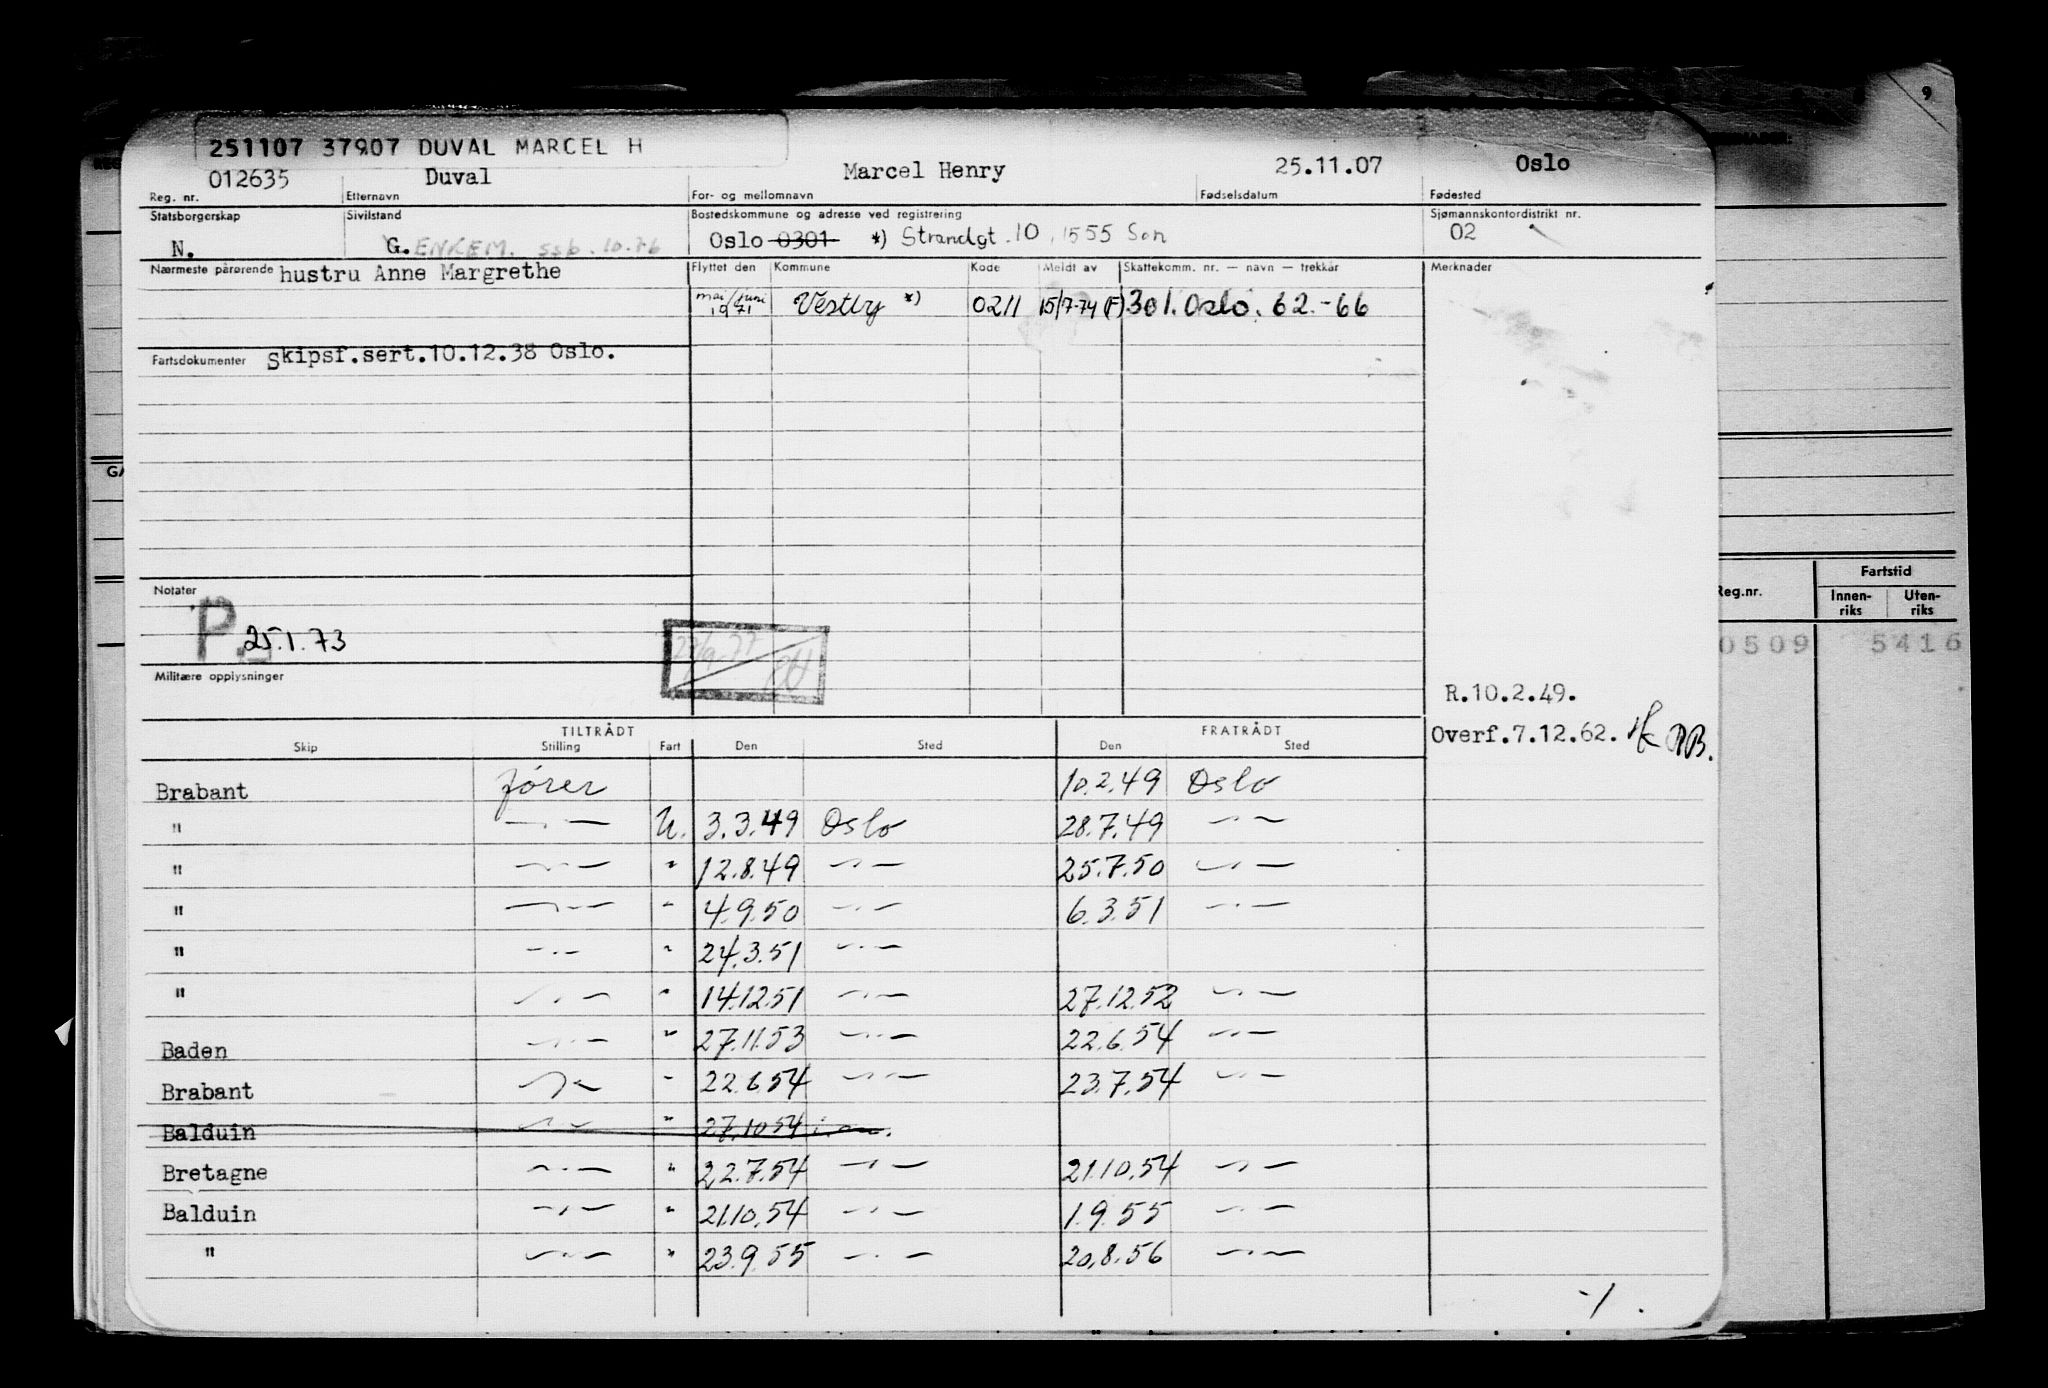 9
251107 37907 DUVAL MARCEL H
012635 Duval Marcel Henry 25.11.07 Oslo
Reg. nr. Etternavn For- og mellomnavn Fødselsdatum Fødested
Statsborgerskap Sivilstand Bostedskommune og adresse ved registrering Sjømannskontordistrikt nr.
N. G. ENKEM. SSB. 10.76 Oslo 0301 *) Strandgt. 10, 1555 Son 02
Nærmeste pårørende hustru Anne Margrethe Flyttet den Kommune Kode Meldt av Skattekomm. nr. — navn — trekkår Merknader
mai/juni 1971 Vestby *) 0211 15/7-74 (F) 301. Oslo. 62.-66
Fartsdokumenter Skipsf.sert.10.12.38 Oslo.
GA
Notater
P. 25.1.73
Militære opplysninger
Reg.nr. Fartstid
Innen-riks Uten-riks
0509 5416
R.10.2.49.
Overf.7.12.62. RB.
TILTRÅDT FRATRÅDT
Skip Stilling Fart Den Sted Den Sted
Brabant fører 10.2.49 Oslo
" —"— U. 3.3.49 Oslo 28.7.49 —"—
" —"— " 12.8.49 —"— 25.7.50 —"—
" —"— " 4.9.50 —"— 6.3.51 —"—
" —"— " 24.3.51 —"—
" —"— " 14.12.51 —"— 27.12.52 —"—
Baden —"— " 27.11.53 —"— 22.6.54 —"—
Brabant —"— " 22.6.54 —"— 23.7.54 —"—
Balduin —"— " 27.10.54
Bretagne —"— " 22.7.54 —"— 21.10.54 —"—
Balduin —"— " 21.10.54 —"— 1.9.55 —"—
" —"— " 23.9.55 —"— 20.8.56 —"—
-1.